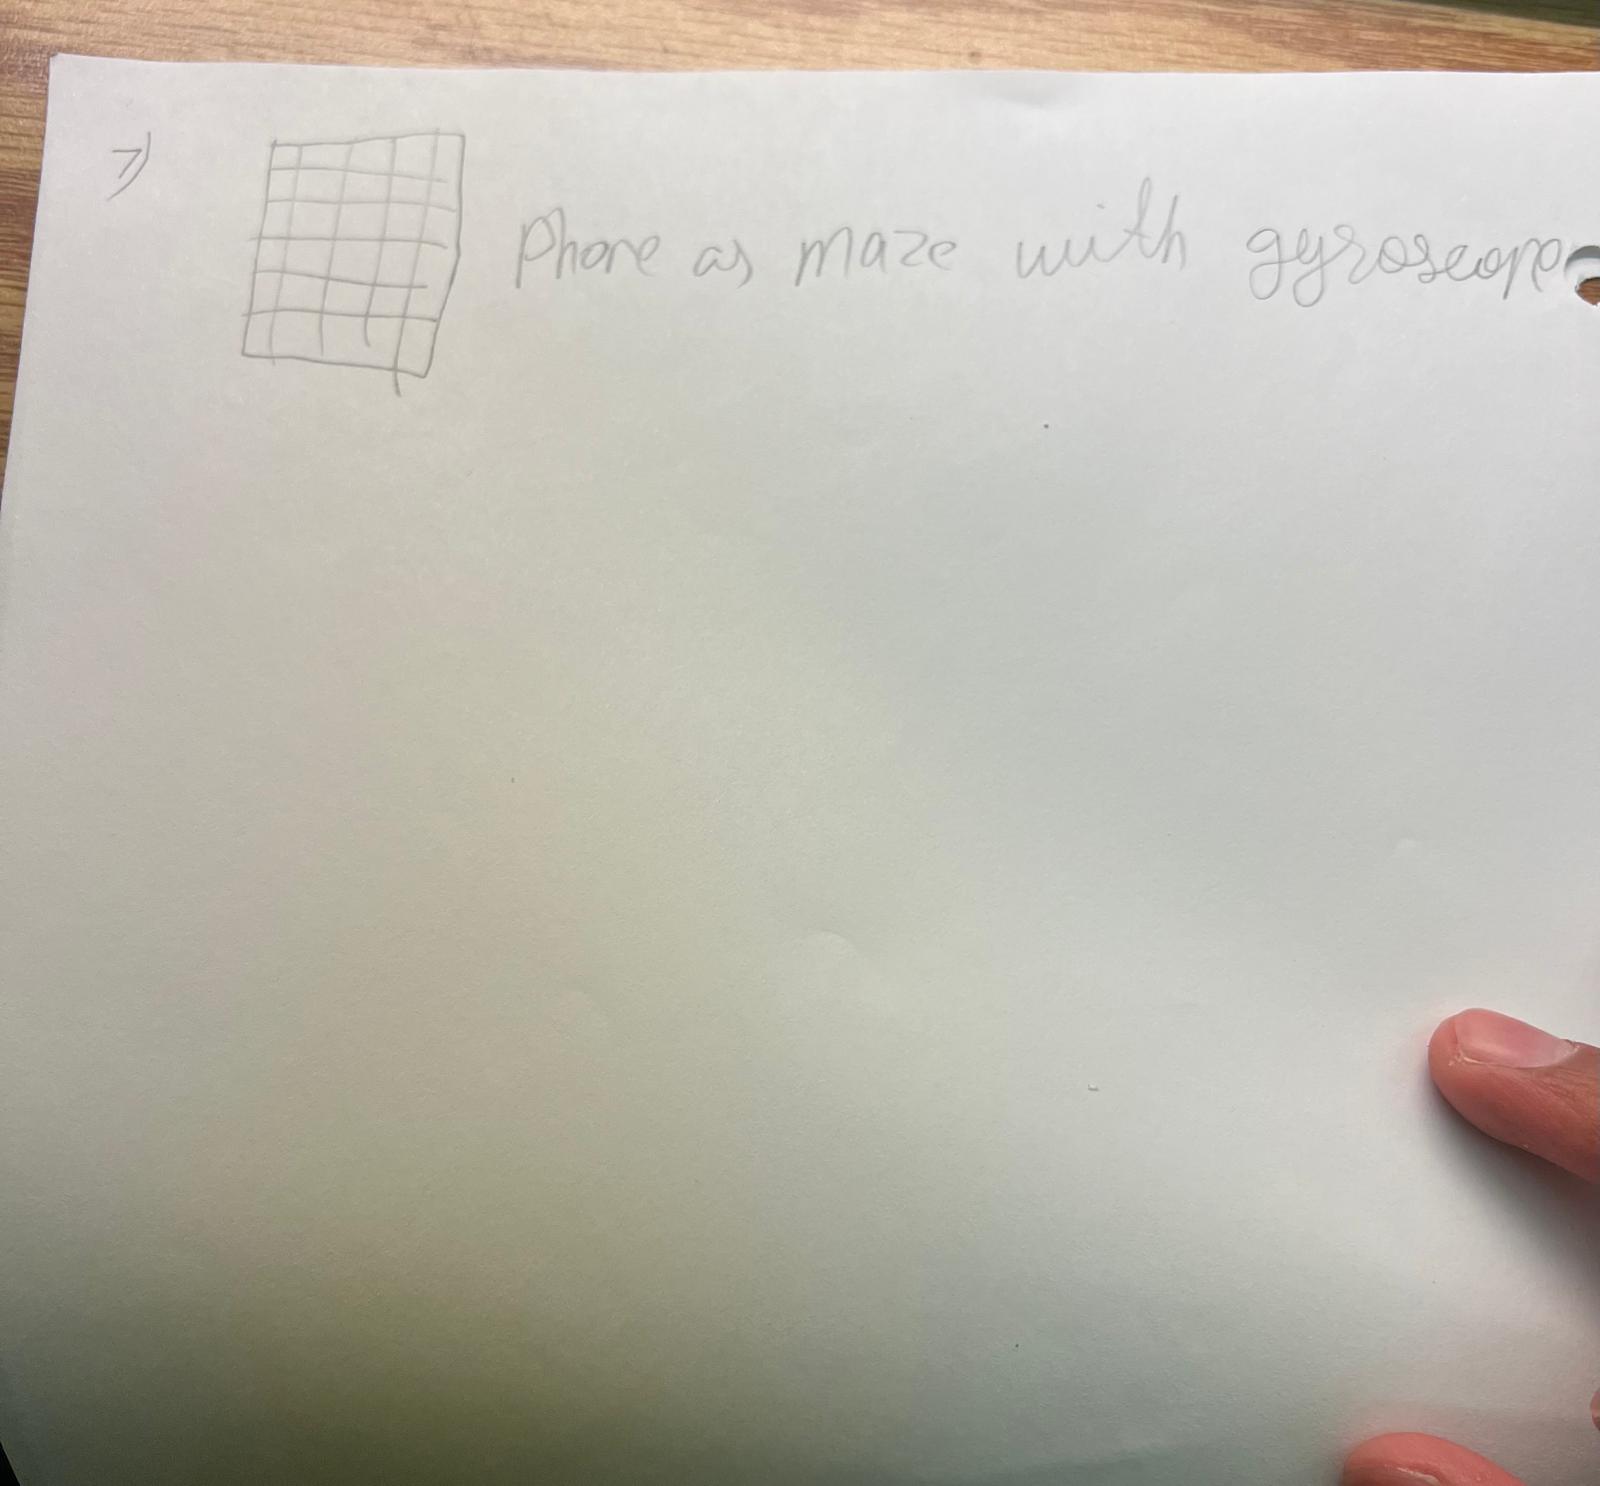 7) Phone as maze with gyroscope